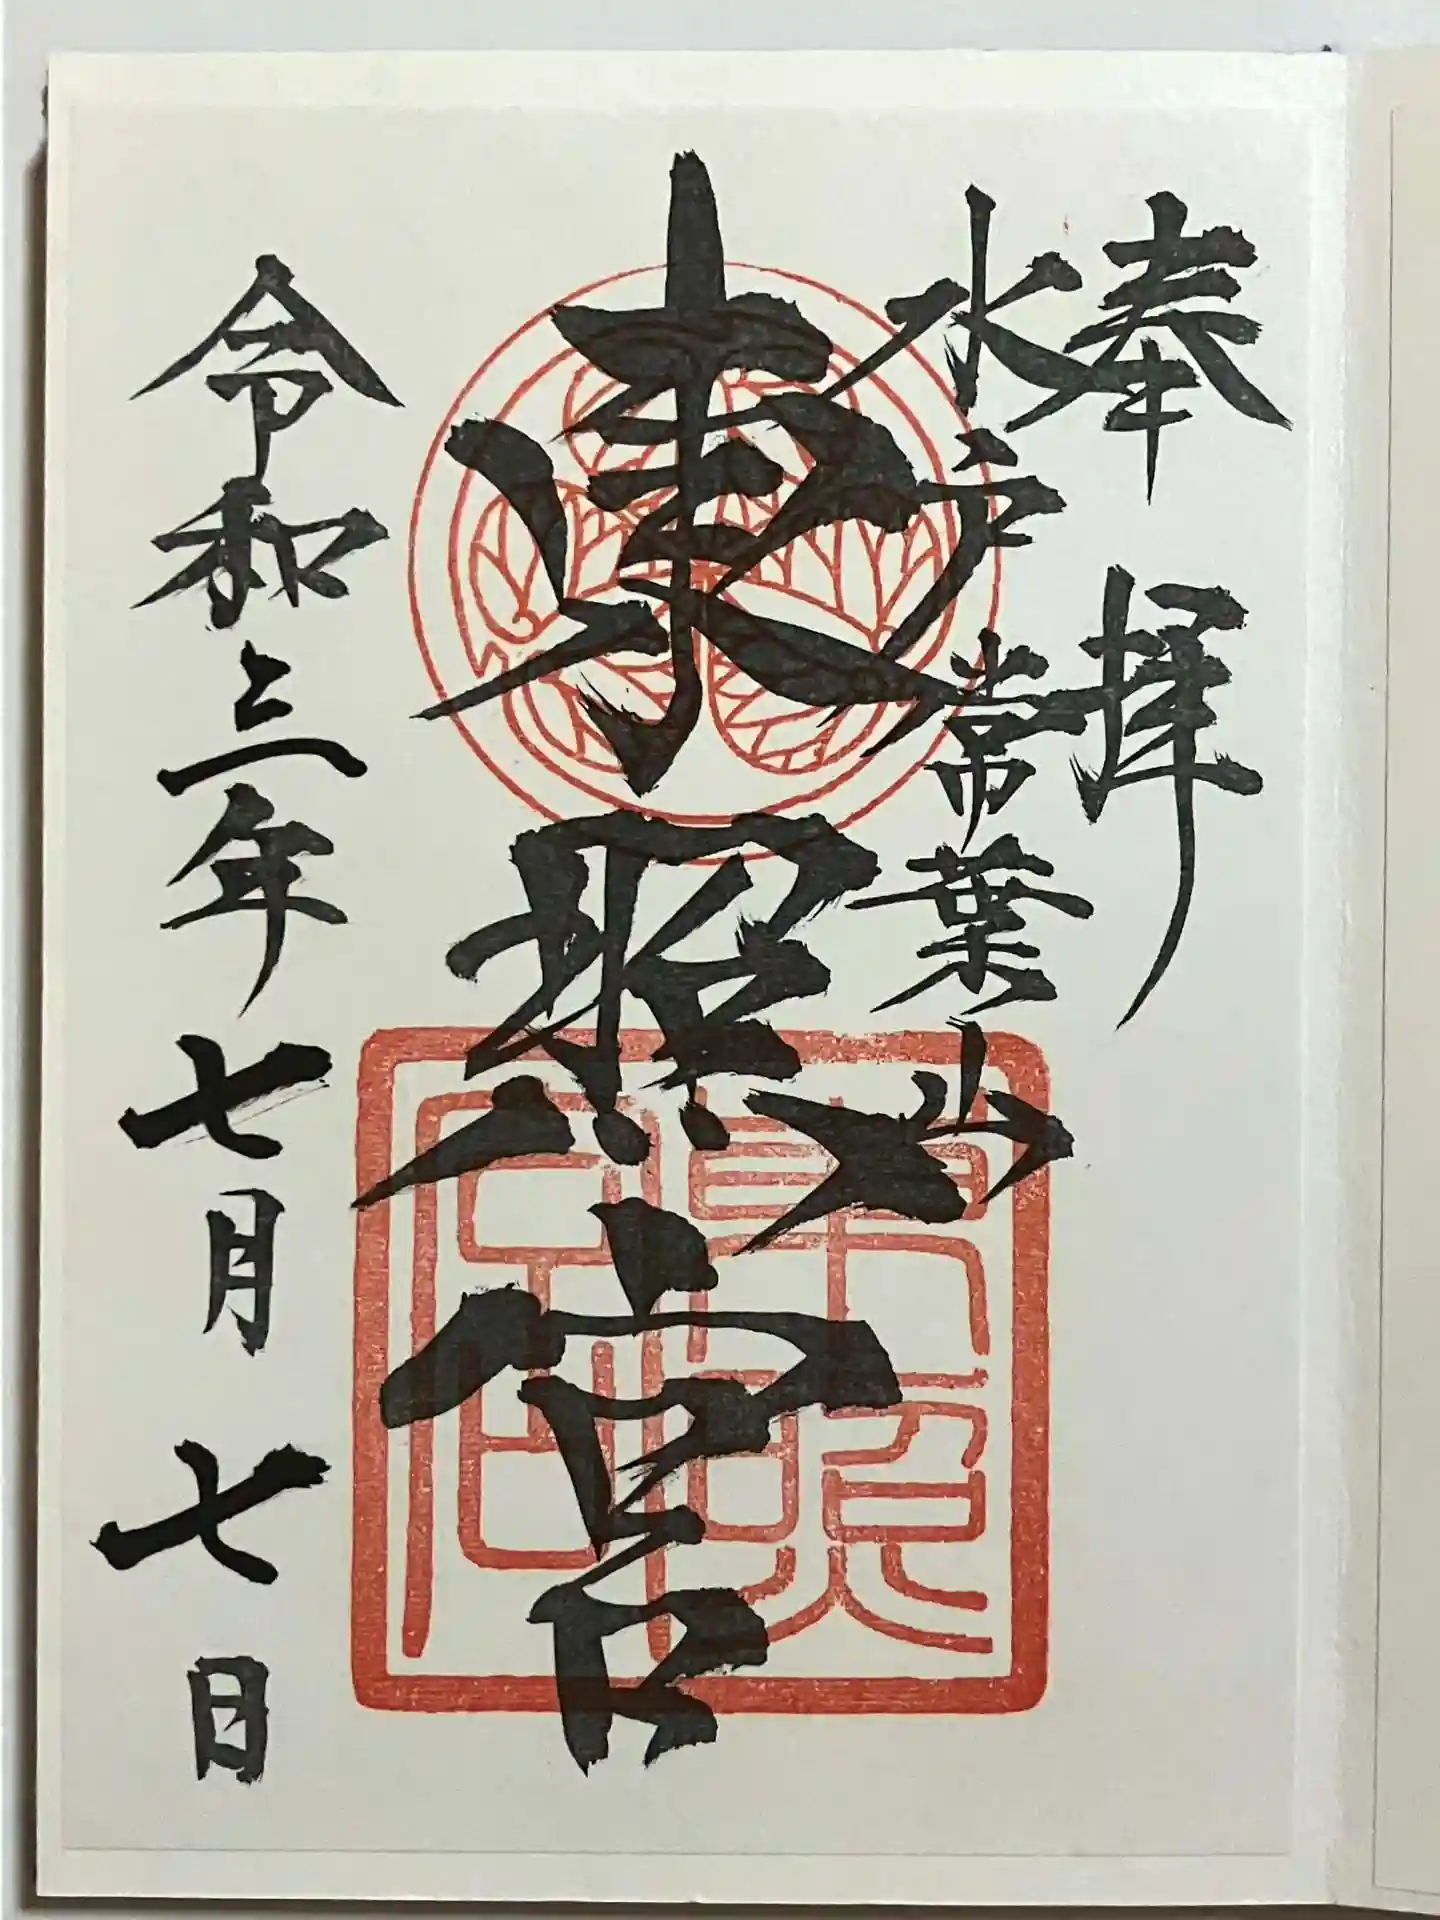 奉拝
水戸常葉山
東照宮
令和三年七月七日
東照宮